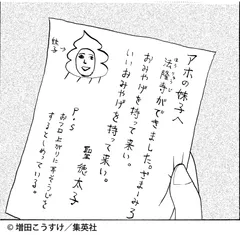 アホの妹子へ
法隆寺ができました。ざまーみろ
ほうりゅうじ
おみやげを持って来い。
いいおみやげを持って来い。
聖徳太子
P.s
お風呂上がりに耳そうじを
するとしめっている。
妹子
©増田こうすけ/集英社